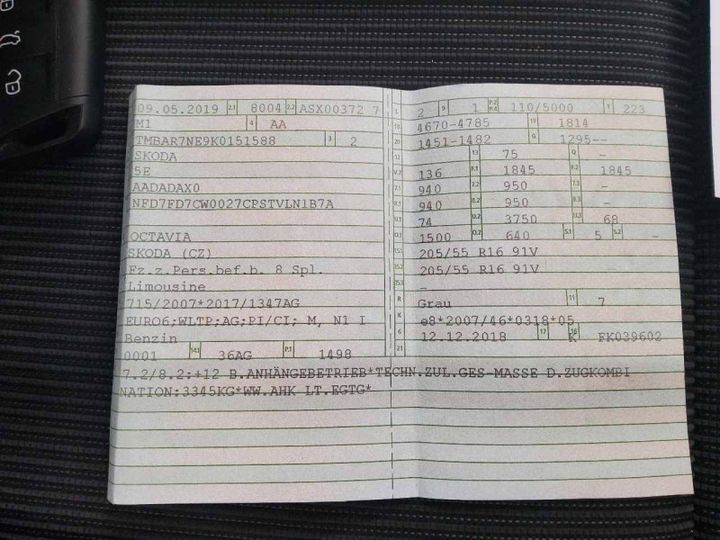 09.05.2019 2.1 8004 2.2 ASX00372 7
M1 4 AA
TMBAR7NE9K0151588 3 2
SKODA
5E
AADADAX0
NFD7FD7CW0027CPSTVLN1B7A
OCTAVIA
SKODA (CZ)
Fz.z.Pers.bef.b. 8 Spl.
Limousine
715/2007*2017/1347AG
EURO6;WLTP;AG;PI/CI; M, N1 I
Benzin
0001 14.1 36AG P.1 1498
L 2 9 1 P.2 P.4 110/5000 T 223
18 4670-4785 19 1814
20 1451-1482 G 1295--
12 - 13 75 Q -
V.7 136 F.1 1845 F.2 1845
7.1 940 7.2 950 7.3 -
8.1 940 8.2 950 8.3 -
U.1 74 U.2 3750 U.3 68
O.1 1500 O.2 640 S.1 5 S.2 -
15.1 205/55 R16 91V
15.2 205/55 R16 91V
15.3 -
R Grau 11 7
K e8*2007/46*0318*05
6 12.12.2018 17 K 16 FK039602
21
7.2/8.2:+12 B.ANHÄNGEBETRIEB*TECHN.ZUL.GES-MASSE D.ZUGKOMBI
NATION:3345KG*WW.AHK LT.EGTG*